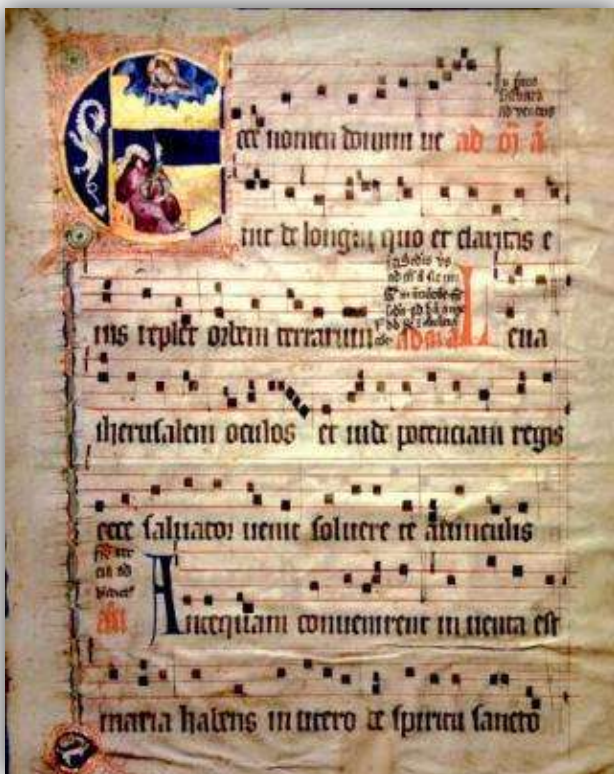 Ecce nomen domini ve
nit de longin quo et claritas e
ius replet orbem terrarum Leva
iherusalem oculos et vide potenciam regis
ecce salvator venit solvere te a vinculis
Antequam convenirent inventa est
maria habens in utero de spiritu sancto